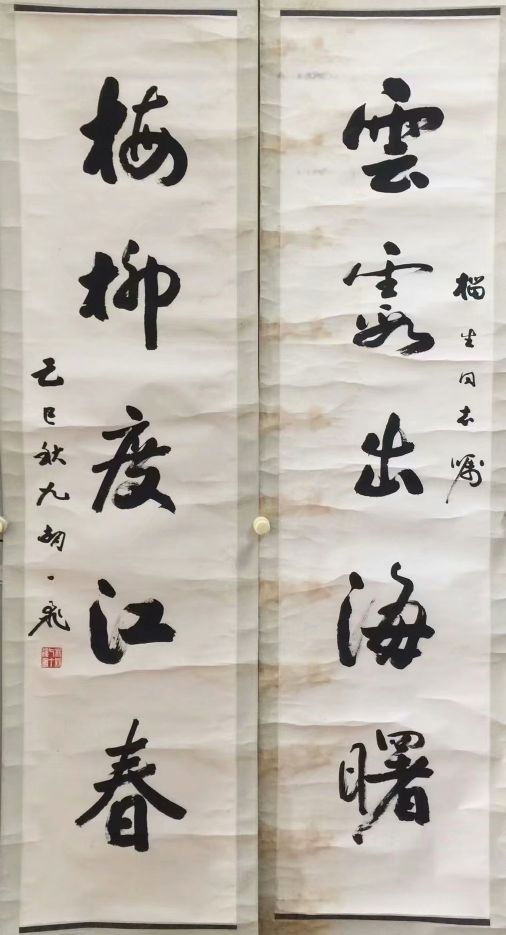 雲霞出海曙
生同志嘱
梅柳度江春
乙巳秋九
一飛